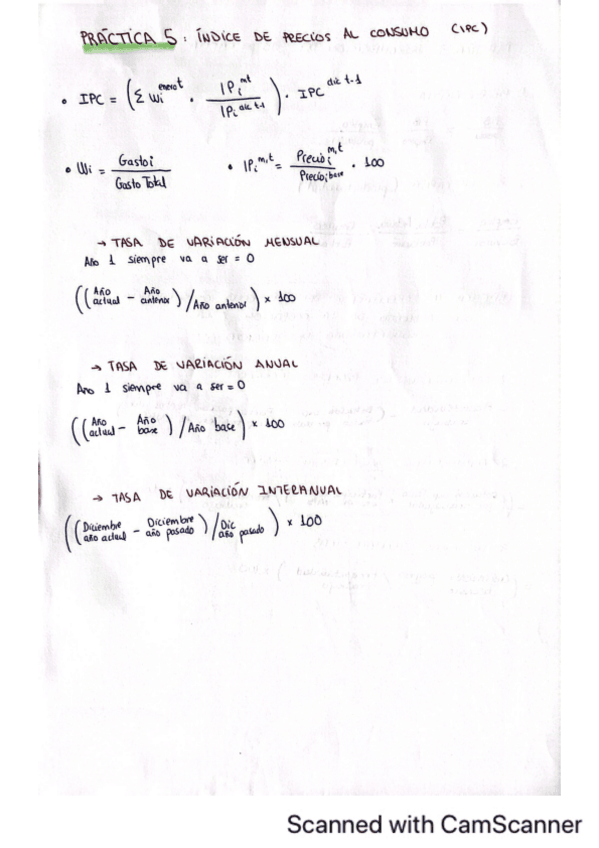 PRÁCTICA 5: ÍNDICE DE PRECIOS AL CONSUMO (IPC)
• IPC = (Σ Wi^enero t · IPi^mt / IPi^dic t-1) · IPC^dic t-1
• Wi = Gastoi / Gasto Total
• IPi^m,t = Precioi^m,t / Precioi base · 100
→ TASA DE VARIACIÓN MENSUAL
Año 1 siempre va a ser = 0
((Año actual - Año anterior) / Año anterior) x 100
→ TASA DE VARIACIÓN ANUAL
Ano 1 siempre va a ser = 0
((Año actual - Año base) / Año base) x 100
→ TASA DE VARIACIÓN INTERANUAL
((Diciembre año actual - Diciembre año pasado) / Dic año pasado) x 100
Scanned with CamScanner